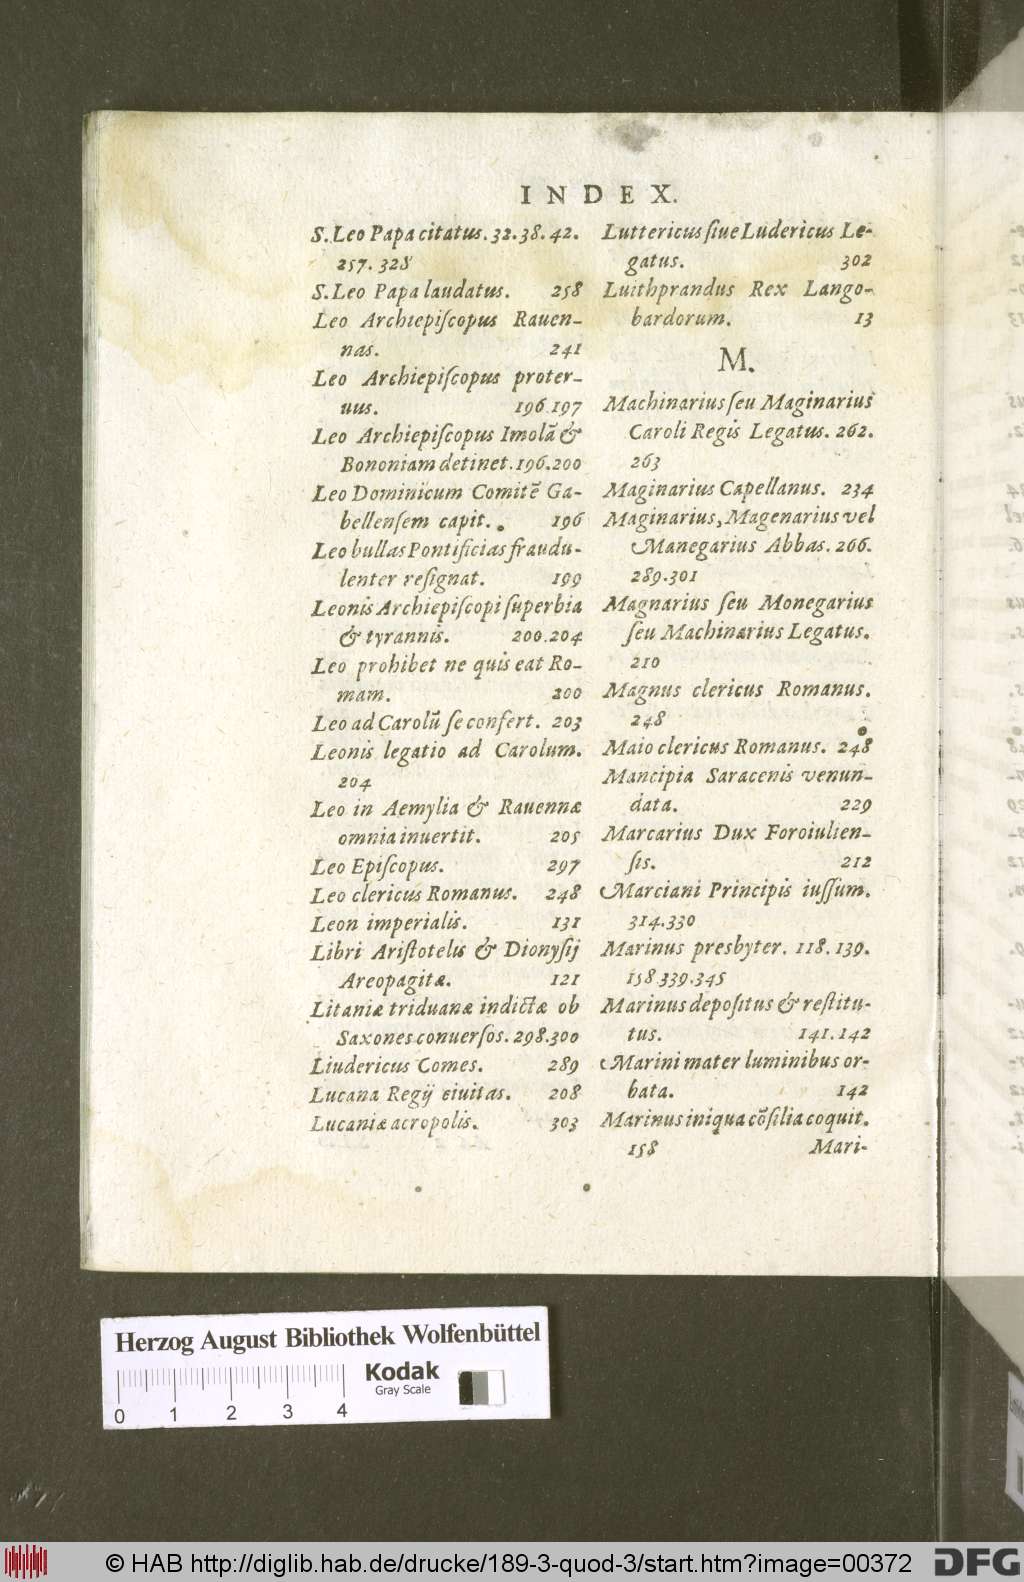 INDEX.
S. Leo Papa citatus. 32. 38. 42.
257. 328
S. Leo Papa laudatus. 258
Leo Archiepiſcopus Rauen-
nas. 241
Leo Archiepiſcopus proter-
uus. 196.197
Leo Archiepiſcopus Imolā &
Bononiam detinet. 196.200
Leo Dominicum Comitē Ga-
bellenſem capit. 196
Leo bullas Pontificias fraudu-
lenter reſignat. 199
Leonis Archiepiſcopi ſuperbia
& tyrannis. 200.204
Leo prohibet ne quis eat Ro-
mam. 200
Leo ad Carolū ſe confert. 203
Leonis legatio ad Carolum.
204
Leo in Aemylia & Rauennæ
omnia inuertit. 205
Leo Epiſcopus. 297
Leo clericus Romanus. 248
Leon imperialis. 131
Libri Ariſtotelis & Dionyſij
Areopagitæ. 121
Litaniæ triduanæ indictæ ob
Saxones conuerſos. 298.300
Liudericus Comes. 289
Lucana Regij ciuitas. 208
Lucaniæ acropolis. 303
Luttericus ſiue Ludericus Le-
gatus. 302
Luithprandus Rex Lango-
bardorum. 13
M.
Machinarius ſeu Maginarius
Caroli Regis Legatus. 262.
263
Maginarius Capellanus. 234
Maginarius, Magenarius vel
Manegarius Abbas. 266.
289.301
Magnarius ſeu Monegarius
ſeu Machinarius Legatus.
210
Magnus clericus Romanus.
248
Maio clericus Romanus. 248
Mancipia Saracenis venun-
data. 229
Marcarius Dux Foroiulien-
ſis. 212
Marciani Principis iuſſum.
314.330
Marinus presbyter. 118. 139.
158.339.345
Marinus depoſitus & reſtitu-
tus. 141.142
Marini mater luminibus or-
bata. 142
Marinus iniqua cōſilia coquit.
158 Mari-
Herzog August Bibliothek Wolfenbüttel
Kodak
Gray Scale
0 1 2 3 4
© HAB http://diglib.hab.de/drucke/189-3-quod-3/start.htm?image=00372
DFG